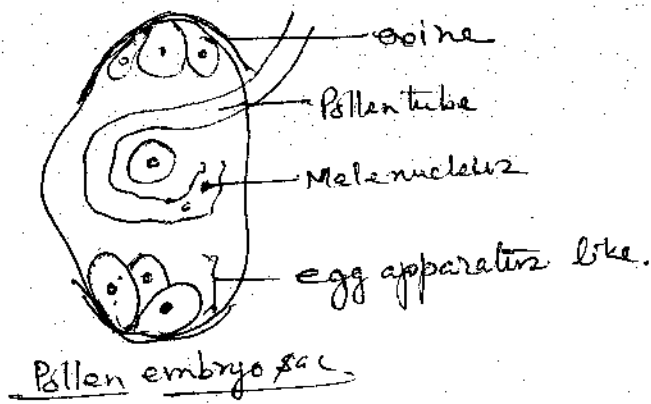 exine
Pollen tube
Male nucleus
egg apparatus like.
Pollen embryo sac.